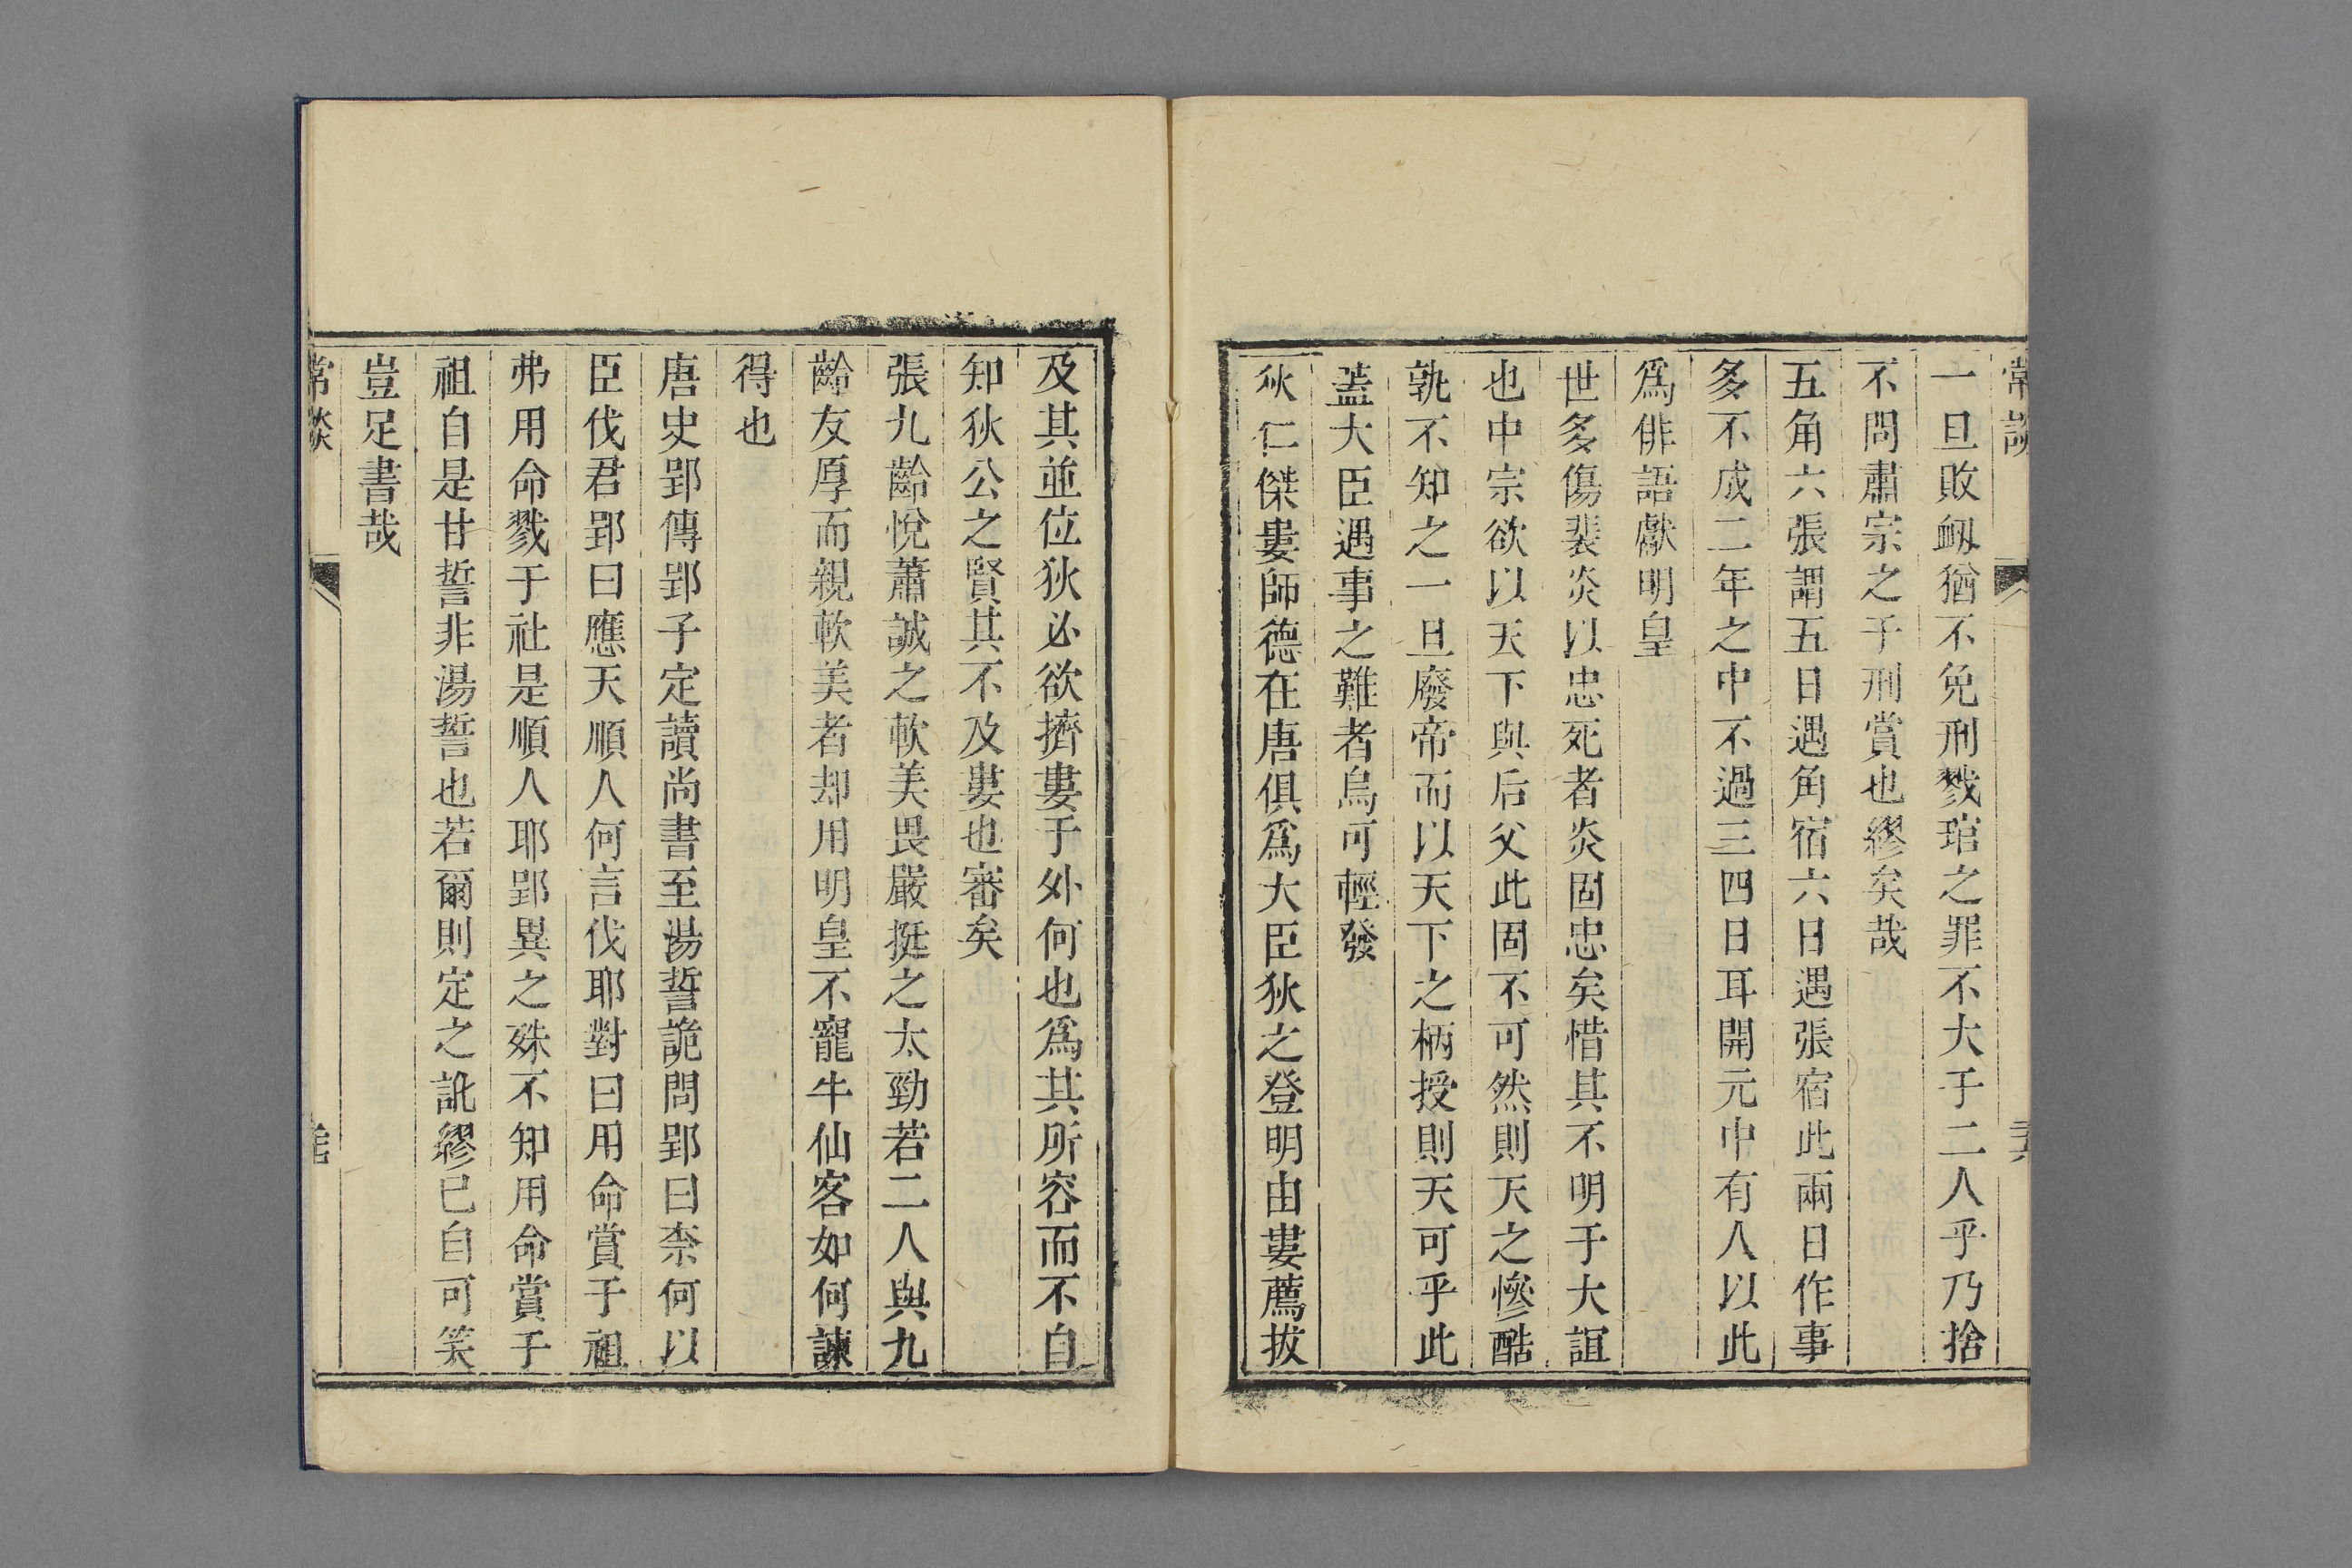 常談
一旦敗衂猶不免刑戮琯之罪不大于二人乎乃捨
不問肅宗之于刑賞也繆矣哉
五角六張謂五日遇角宿六日遇張宿此兩日作事
多不成二年之中不過三四日耳開元中有人以此
爲俳語獻明皇
世多傷裴炎以忠死者炎固忠矣惜其不明于大誼
也中宗欲以天下與后父此固不可然則天之慘酷
孰不知之一旦廢帝而以天下之柄授則天可乎此
蓋大臣遇事之難者烏可輕發
狄仁傑婁師德在唐俱爲大臣狄之登明由婁薦拔
及其並位狄必欲擠婁于外何也爲其所容而不自
知狄公之賢其不及婁也審矣
張九齡悅蕭誠之軟美畏嚴挺之太勁若二人與九
齡友厚而親軟美者却用明皇不寵牛仙客如何諫
得也
唐史郢傳郢子定讀尚書至湯誓詭問郢曰柰何以
臣伐君郢曰應天順人何言伐耶對曰用命賞于祖
弗用命戮于社是順人耶郢異之殊不知用命賞于
祖自是甘誓非湯誓也若爾則定之訛繆已自可笑
豈足書哉
常談